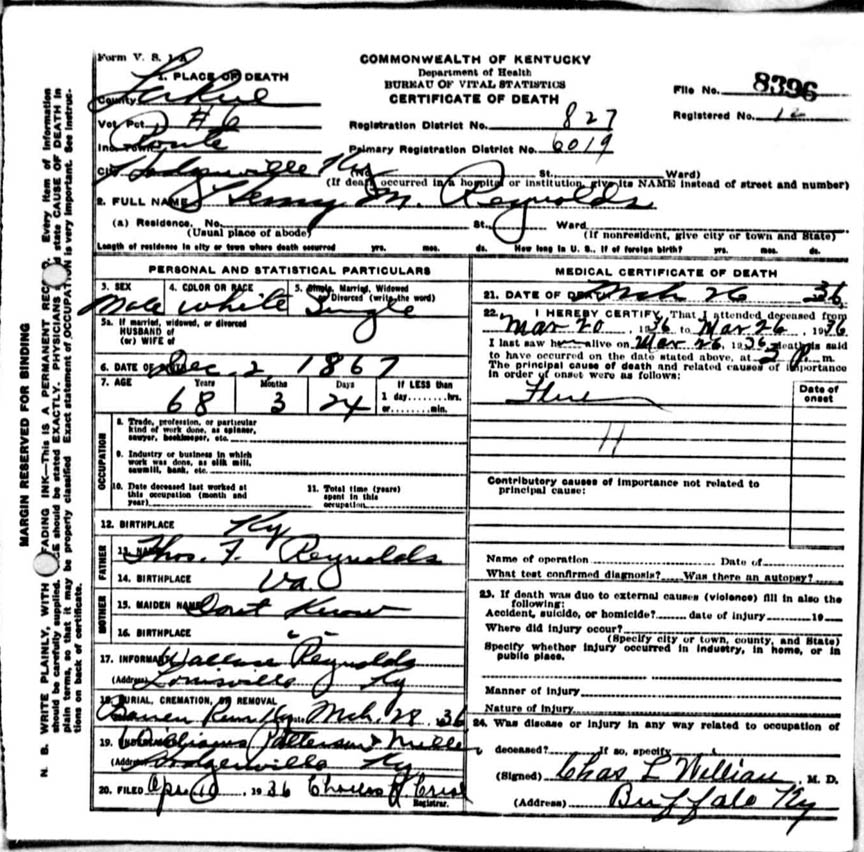 Form V. S. 1-A
COMMONWEALTH OF KENTUCKY
Department of Health
BUREAU OF VITAL STATISTICS
CERTIFICATE OF DEATH
File No. 8396
Registered No. 12
Registration District No. 827
Primary Registration District No. 6019
1. PLACE OF DEATH
County Larue
Vot. Pct. #6
Inc. Town Route
City Hodgenville Ky (No. St. Ward)
(If death occurred in a hospital or institution, give its NAME instead of street and number)
2. FULL NAME Henry M. Reynolds
(a) Residence. No. St. Ward
(Usual place of abode) (If nonresident, give city or town and State)
Length of residence in city or town where death occurred yrs. mos. ds. How long in U. S., if of foreign birth? yrs. mos. ds.
PERSONAL AND STATISTICAL PARTICULARS
3. SEX 4. COLOR OR RACE 5. Single, Married, Widowed or Divorced (write the word)
Male White Single
5a. If married, widowed, or divorced
HUSBAND of
(or) WIFE of
6. DATE OF Dec. 2, 1867
7. AGE Years Months Days If LESS than
68 3 24 1 day hrs.
or min.
OCCUPATION
8. Trade, profession, or particular
kind of work done, as spinner,
sawyer, bookkeeper, etc.
9. Industry or business in which
work was done, as silk mill,
sawmill, bank, etc.
10. Date deceased last worked at
this occupation (month and
year)
11. Total time (years)
spent in this
occupation
12. BIRTHPLACE Ky
FATHER
13. NAME Thos. F. Reynolds
14. BIRTHPLACE Va.
MOTHER
15. MAIDEN NAME Dont Know
16. BIRTHPLACE " "
17. INFORMANT Wallace Reynolds
(Address) Louisville Ky
18. BURIAL, CREMATION, OR REMOVAL
Run Ky Date Mch. 28 36
19. Williams Patterson & Miller
(Address) Hodgenville Ky
20. FILED Apr 10 1936 Charles Registrar.
MEDICAL CERTIFICATE OF DEATH
21. DATE OF DEATH Mch 26 36
22. I HEREBY CERTIFY, That I attended deceased from
Mar 20, 1936 to Mar 26, 1936
I last saw him alive on Mar 26, 1936 death is said
to have occurred on the date stated above, at 3 P. m.
The principal cause of death and related causes of importance
in order of onset were as follows:
Date of
onset
Flue
11
Contributory causes of importance not related to
principal cause:
Name of operation Date of
What test confirmed diagnosis? Was there an autopsy?
23. If death was due to external causes (violence) fill in also the
following:
Accident, suicide, or homicide? date of injury 19
Where did injury occur?
(Specify city or town, county, and State)
Specify whether injury occurred in industry, in home, or in
public place.
Manner of injury
Nature of injury
24. Was disease or injury in any way related to occupation of
deceased? If so, specify
(Signed) Chas L William, M. D.
(Address) Buffalo Ky
MARGIN RESERVED FOR BINDING
N. B. WRITE PLAINLY, WITH FADING INK—THIS IS A PERMANENT RECORD. Every item of information
should be carefully supplied. should be stated EXACTLY. PHYSICIANS state CAUSE OF DEATH in
plain terms, so that it may be properly classified. Exact statement of OCCUPATION is very important. See instruc-
tions on back of certificate.